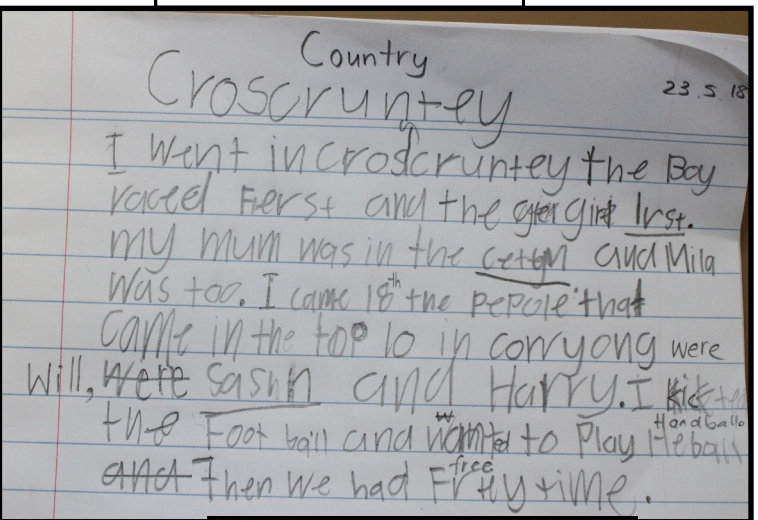 Country
Croscruntey
23.5.18
I went in croscruntey the Boy
raced Fierst and the girl lrst.
my mum was in the cettgn and Mila
was too. I came 18th the pepole that
came in the top 10 in corryong were
Will, were Sashn and Harry. I
Handballs
the Foot ball and wanted to Play Heball
free
and Then we had Fritytime.